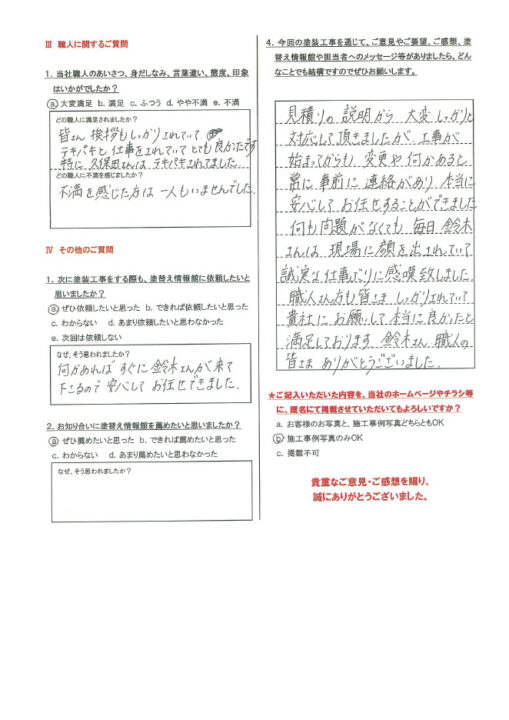 Ⅲ 職人に関するご質問
1. 当社職人のあいさつ、身だしなみ、言葉遣い、態度、印象
はいかがでしたか？
a 大変満足 b. 満足 c. ふつう d. やや不満 e. 不満
どの職人に満足されましたか？
皆さん 挨拶もしっかりされていて
テキパキと仕事をされていて とても良かったです
特に 久保田さんは テキパキされてました。
どの職人に不満を感じましたか？
不満を感じた方は 一人もいませんでした。
Ⅳ その他のご質問
1. 次に塗装工事をする際も、塗替え情報館に依頼したいと
思いましたか？
a ぜひ依頼したいと思った b. できれば依頼したいと思った
c. わからない d. あまり依頼したいと思わなかった
e. 次回は依頼しない
なぜ、そう思われましたか？
何かあれば すぐに 鈴木さんが来て
下さるので 安心して お任せできました。
2. お知り合いに塗替え情報館を薦めたいと思いましたか？
a ぜひ薦めたいと思った b. できれば薦めたいと思った
c. わからない d. あまり薦めたいと思わなかった
なぜ、そう思われましたか？
4. 今回の塗装工事を通じて、ご意見やご要望、ご感想、塗
替え情報館や担当者へのメッセージ等がありましたら、どん
なことでも結構ですのでぜひお願いします。
見積りの 説明から 大変 しっかりと
対応して 頂きましたが 工事が
始まってからも 変更や 何かあると
常に 事前に 連絡があり 本当に
安心して お任せすることができました
何も 問題が なくても 毎日 鈴木
さんは 現場に 顔を 出されていて
誠実な 仕事ぶりに 感嘆致しました。
職人さん方も 皆さま しっかりされていて
貴社に お願いして 本当に 良かったと
満足しております 鈴木さん 職人の
皆さま ありがとうございました。
★ご記入いただいた内容を、当社のホームページやチラシ等
に、匿名にて掲載させていただいてもよろしいですか？
a. お客様のお写真と、施工事例写真どちらともOK
b 施工事例写真のみOK
c. 掲載不可
貴重なご意見・ご感想を賜り、
誠にありがとうございました。